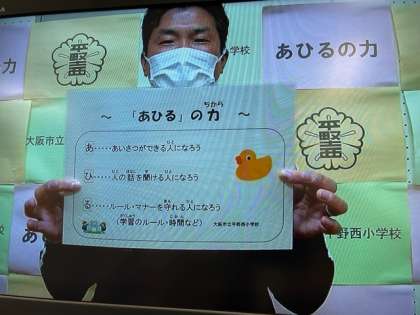 あひるの力
学校
あひるの力
大阪市立
～ 「あひる」の力 ～
ちから
あ……あいさつができる人になろう
ひ……人の話を聞ける人になろう
る……ルール・マナーを守れる人になろう
(学習のルール・時間など)
大阪市立平野西小学校
あひ
平野西小学校